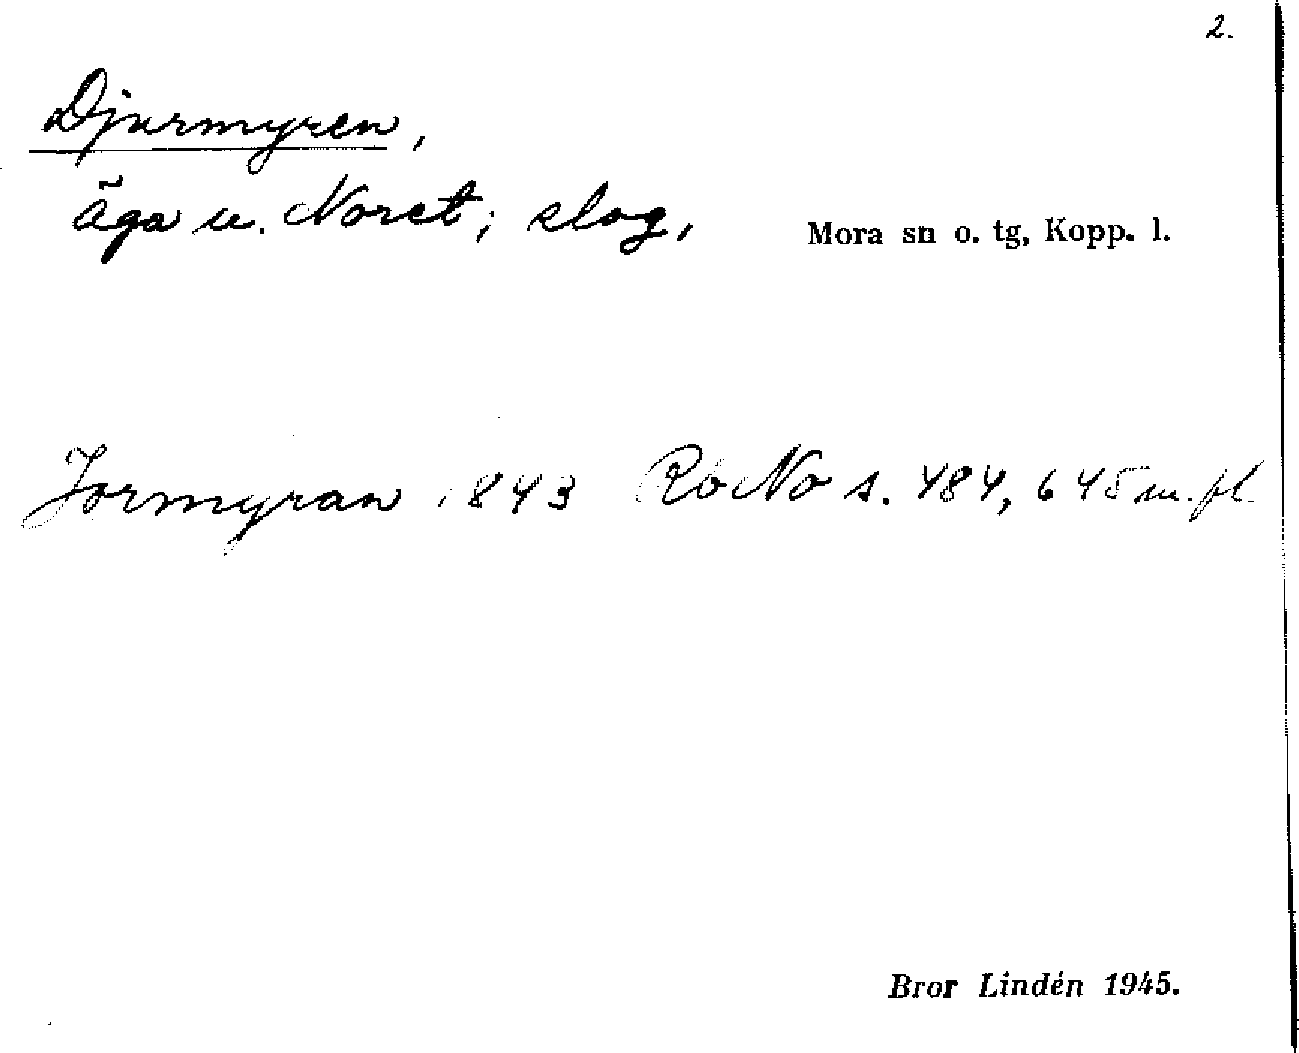 2.
Djurmyren,
äga u. Noret; slog,
Mora sn o. tg, Kopp. l.
Jormyran 1843 RoNo s. 484, 645 m. fl.
Bror Lindén 1945.